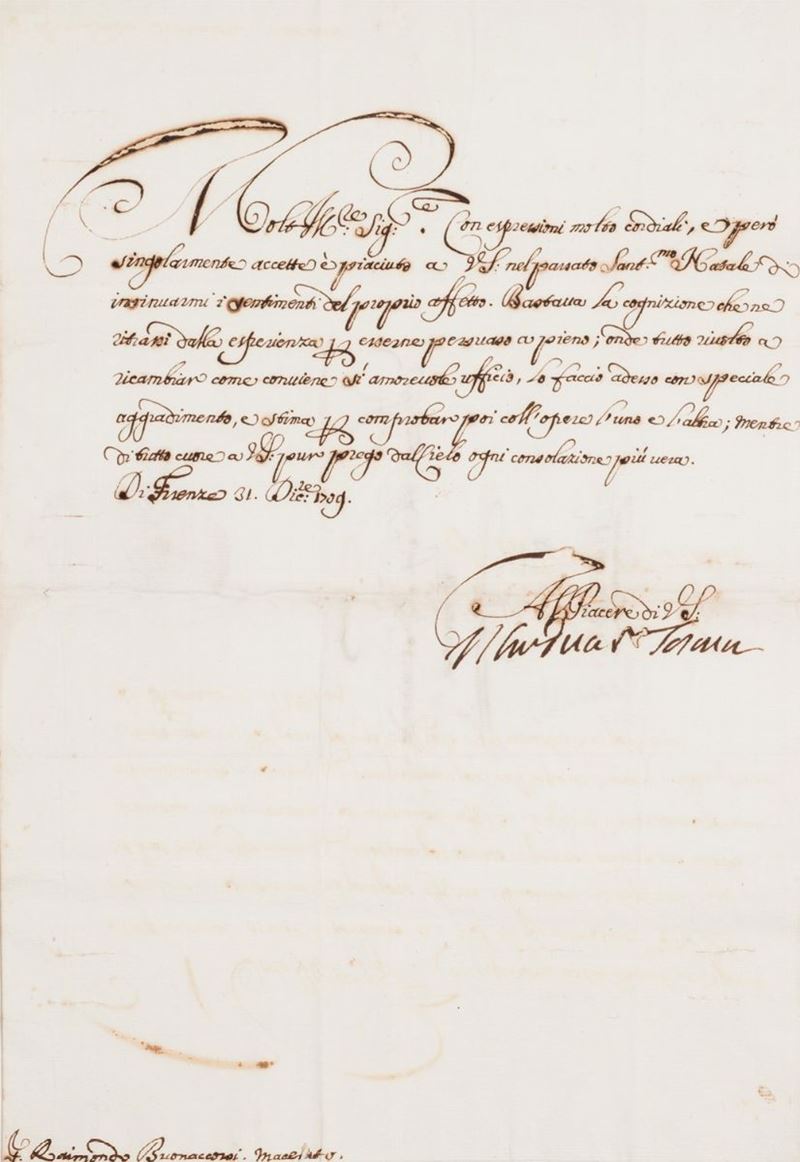 Molto Ill.re Sig.re. Con espressioni molto cordiali, e però
singolarmente accette è piaciuto a VS: nel passato Sant.mo Natale di
insinuarmi i sentimenti del proprio affetto. Bastava la cognizione che ne
ritrassi dalla esperienza p esserne persuaso a pieno; onde tutto rivolto a
ricambiar come conviene sí amorevole ufficio, lo faccio adesso con speciale
aggradimento, e stima p comprobar poi coll'opere l'uno e l'altra; mentre
di tutto cuore a VS: pur prego dal Cielo ogni consolazione piú vera.
Di Firenze 31. Dic.re 1709.
Al Piacere di VS:
Toscana
S. Raimondo Buonaccorsi. Macerata.